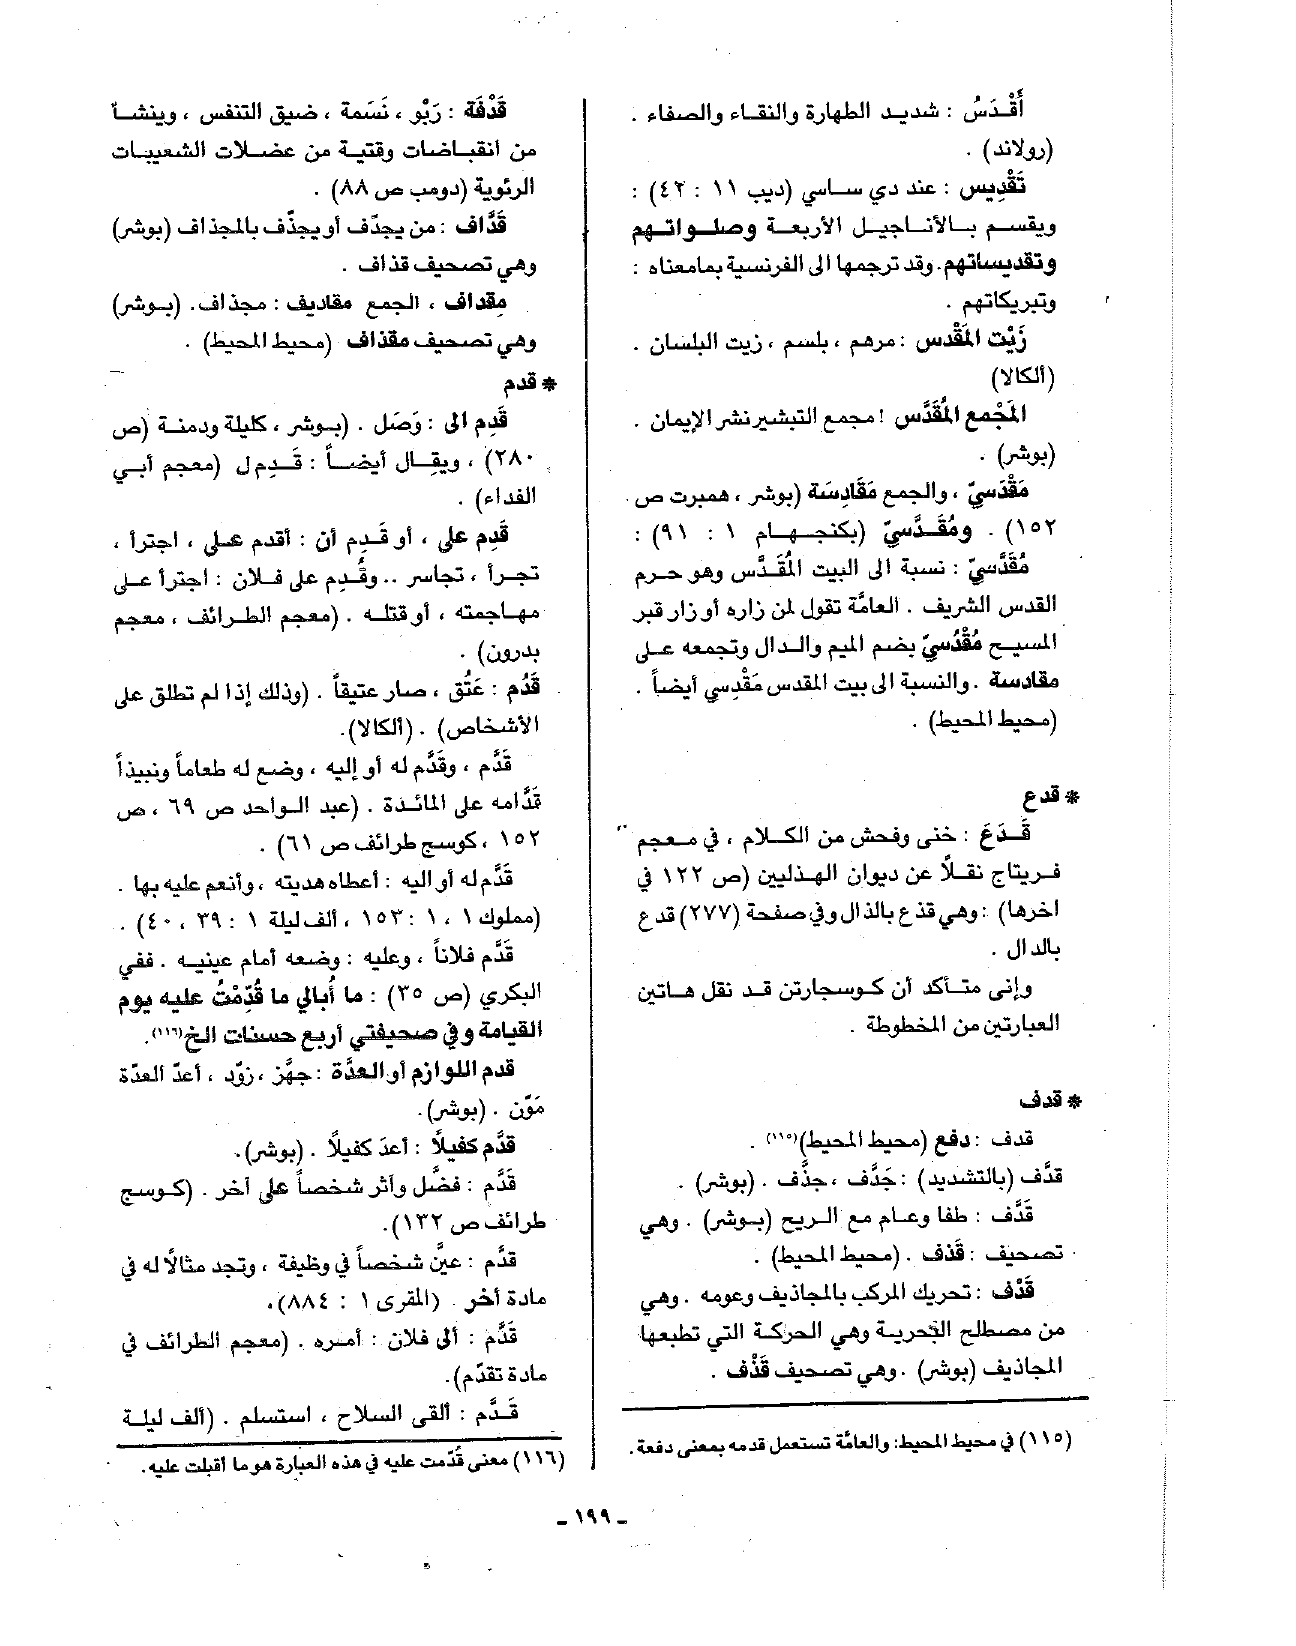 أَقْدَسُ : شديد الطهارة والنقاء والصفاء .
(رولاند) .
تَقْدِيس : عند دي ساسي (ديب ١١ : ٤٢) :
ويقسم بالأناجيل الأربعة وصلواتهم
وتقديساتهم. وقد ترجمها الى الفرنسية بما معناه :
وتبريكاتهم .
زَيْت المَقْدس : مرهم ، بلسم ، زيت البلسان .
(ألكالا)
المَجْمع المُقَدَّس ! مجمع التبشير نشر الإيمان .
(بوشر) .
مَقْدَسيّ ، والجمع مَقَادِسَة (بوشر ، همبرت ص
١٥٢) . ومُقَدَّسيّ (بكنجهام ١ : ٩١) :
مُقَدَّسيّ : نسبة الى البيت المُقَدَّس وهو حرم
القدس الشريف . العامّة تقول لمن زاره أو زار قبر
المسيح مُقْدُسيّ بضم الميم والدال وتجمعه على
مقادسة . والنسبة الى بيت المقدس مَقْدِسي أيضاً .
(محيط المحيط) .
* قدع
قَدَعَ : خنى وفحش من الكلام ، في معجم
فريتاج نقلاً عن ديوان الهذليين (ص ١٢٢ في
اخرها) : وهي قذع بالذال وفي صفحة (٢٧٧) قدع
بالدال .
وإنى متأكد أن كوسجارتن قد نقل هاتين
العبارتين من المخطوطة .
* قدف
قدف : دفع (محيط المحيط)(١١٥) .
قدَّف (بالتشديد) : جَدَّف ، جذَّف . (بوشر) .
قَدَّف : طفا وعام مع الريح (بوشر) . وهي
تصحيف : قَذف . (محيط المحيط) .
قَدْف : تحريك المركب بالمجاذيف وعومه . وهي
من مصطلح البحرية وهي الحركة التي تطبعها
المجاذيف (بوشر) . وهي تصحيف قَذْف .
(١١٥) في محيط المحيط: والعامّة تستعمل قدمه بمعنى دفعة.
قَدْفَة : رَبْو ، نَسَمة ، ضيق التنفس ، وينشأ
من انقباضات وقتية من عضلات الشعيبات
الرئوية (دومب ص ٨٨) .
قَدَّاف : من يجدّف أو يجذّف بالمجذاف (بوشر)
وهي تصحيف قذاف .
مِقداف ، الجمع مقاديف : مجذاف. (بوشر)
وهي تصحيف مقذاف (محيط المحيط) .
* قدم
قَدِم الى : وَصَل . (بوشر ، كليلة ودمنة (ص
٢٨٠) ، ويقال أيضاً : قَدِم ل (معجم أبي
الفداء) .
قَدِم على ، أو قَدِم أن : أقدم على ، اجترأ ،
تجرأ ، تجاسر .. وقُدِم على فلان : اجترأ على
مهاجمته ، أو قتله . (معجم الطرائف ، معجم
بدرون) .
قَدُم : عَتُق ، صار عتيقاً . (وذلك إذا لم تطلق على
الأشخاص) . (ألكالا).
قَدَّم ، وقَدَّم له أو إليه ، وضع له طعاماً ونبيذاً
قَدَّامه على المائدة . (عبد الواحد ص ٦٩ ، ص
١٥٢ ، كوسج طرائف ص ٦١) .
قَدَّم له أو اليه : أعطاه هديته ، وأنعم عليه بها .
(مملوك ١ ، ١ : ١٥٣ ، ألف ليلة ١ : ٣٩ ، ٤٠) .
قَدَّم فلاناً ، وعليه : وضعه أمام عينيه . ففي
البكري (ص ٣٥) : ما أُبالي ما قُدِّمْتُ عليه يوم
القيامة وفي صحيفتي أربع حسنات الخ(١١٦).
قدم اللوازم أو العدَّة : جهَّز ، زوّد ، أعدّ العدّة
مَوّن . (بوشر).
قدَّم كفيلاً : أعدّ كفيلاً . (بوشر).
قَدَّم : فضَّل وأثر شخصاً على أخر . (كوسج
طرائف ص ١٣٢).
قدَّم : عيَّن شخصاً في وظيفة ، وتجد مثالاً له في
مادة أخر . (المقرى ١ : ٨٨٤).
قَدَّم : ألى فلان : أمره . (معجم الطرائف في
مادة تقدّم).
قَدَّم : ألقى السلاح ، استسلم . (ألف ليلة
(١١٦) معنى قُدّمت عليه في هذه العبارة هو ما أقبلت عليه.
ـ ١٩٩ ـ